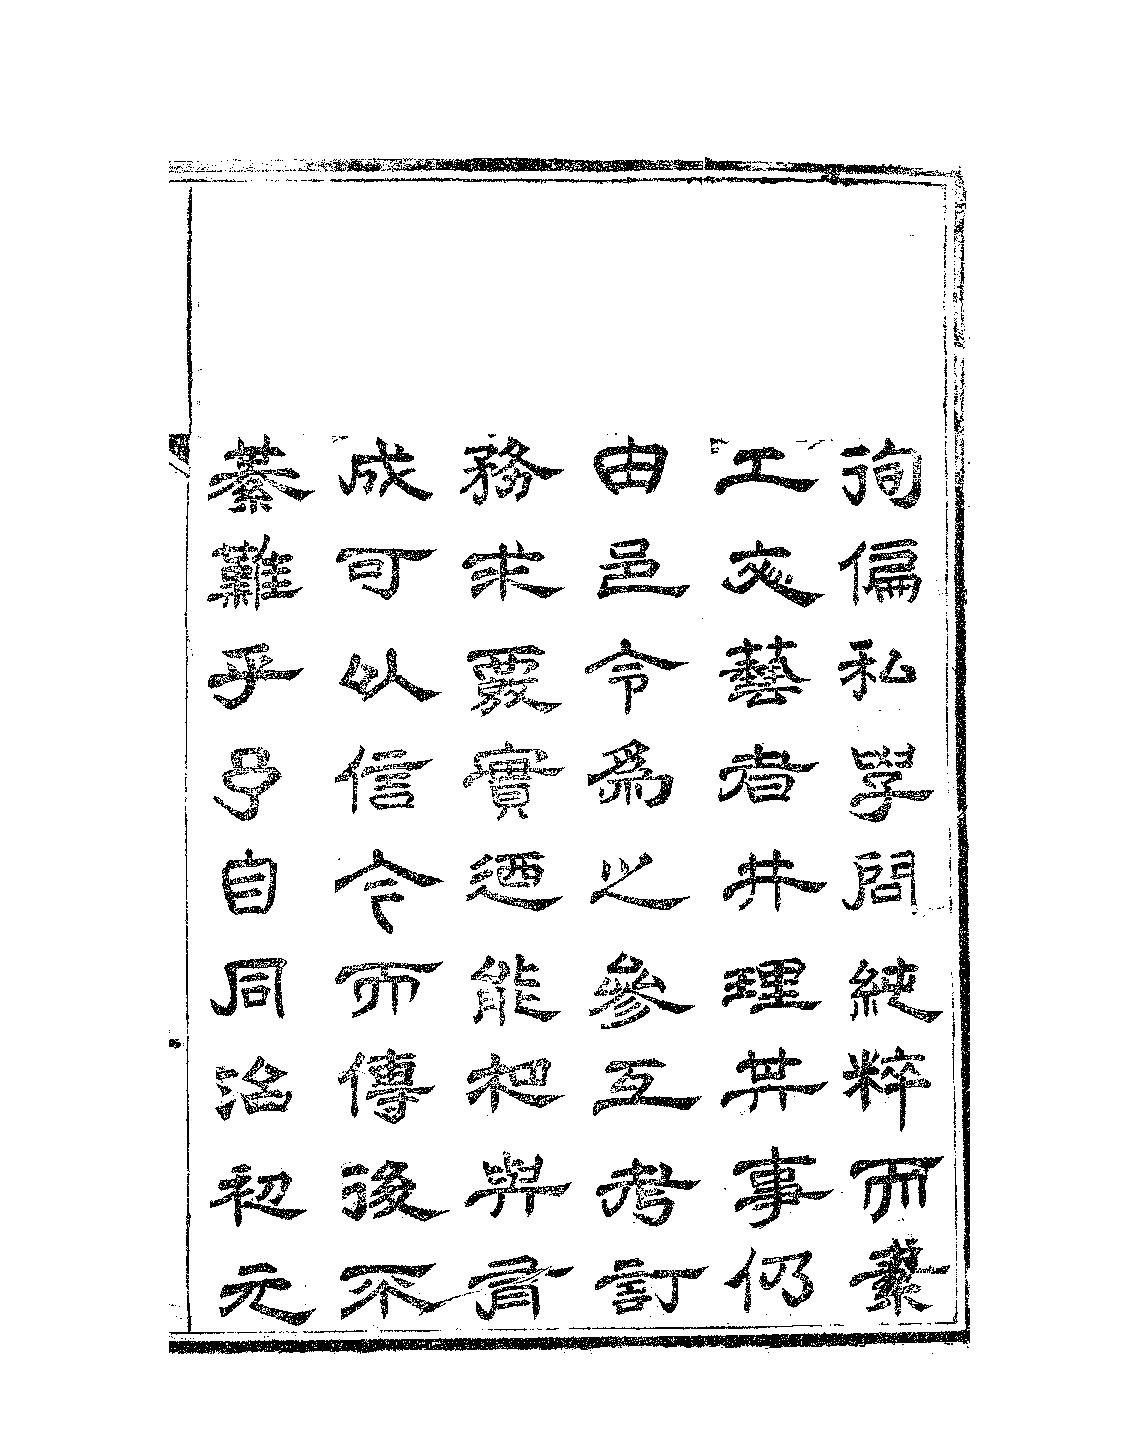 徇偏私學問純粹而兼
工文藝者共理其事仍
由邑令為之參互考訂
務求覈實迺能相與有
成可以信今而傳後不
綦難乎予自同治初元